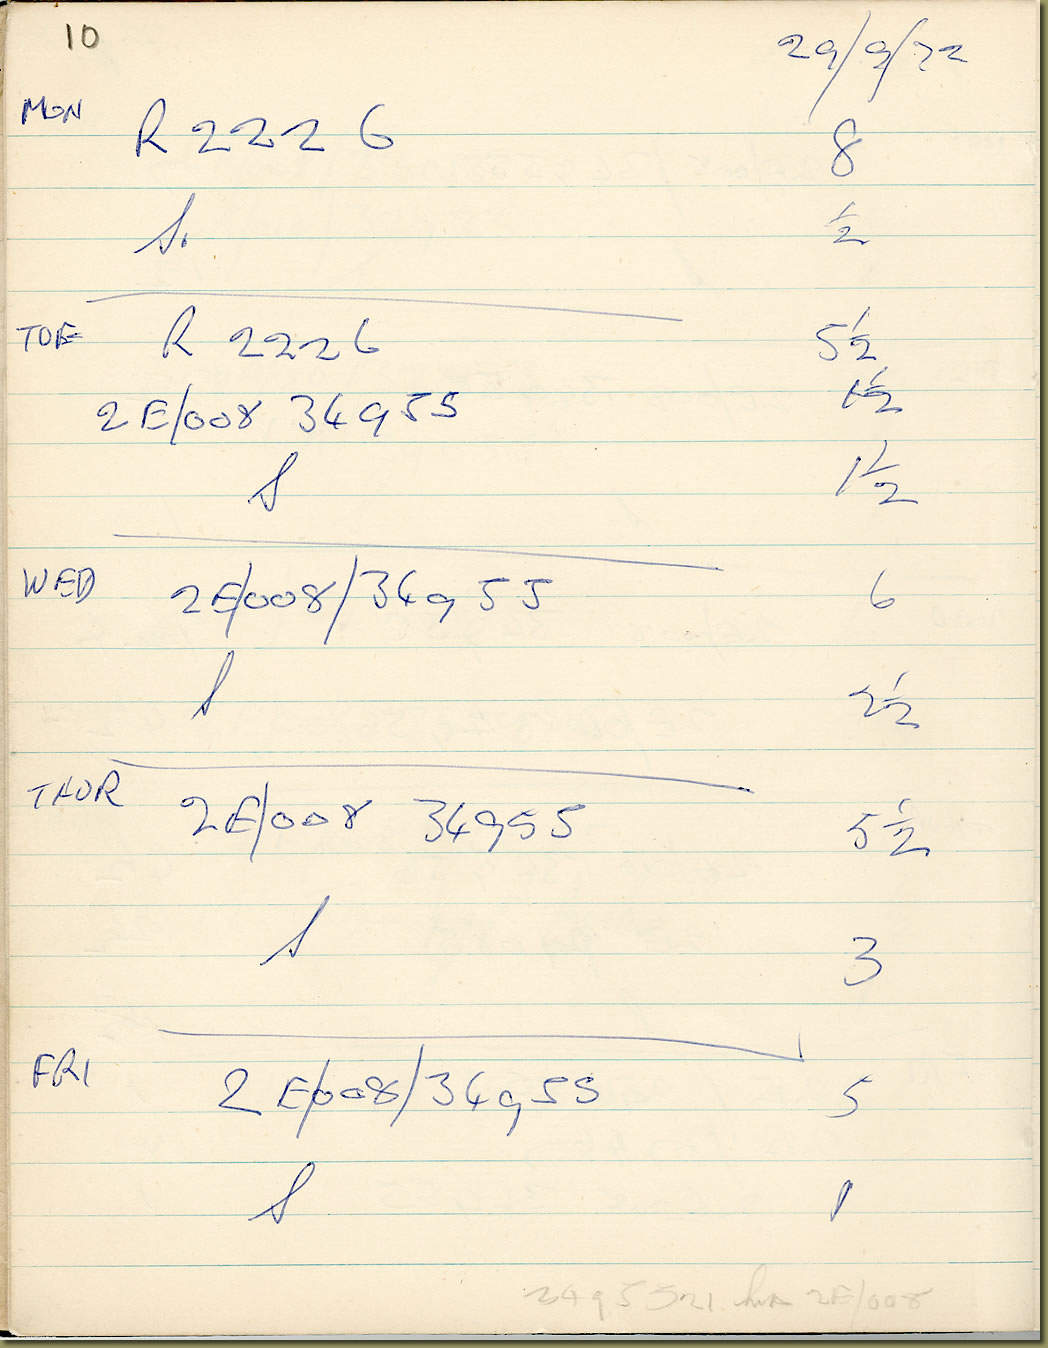 10
29/9/72
MON R 2226 8
S. ½
TUE R 2226 5½
2E/008 34955 1½
S 1½
WED 2E/008/34955 6
S 2½
THUR 2E/008 34955 5½
S 3
FRI 2E/008/34955 5
S 1
34955 21 hrs 2E/008